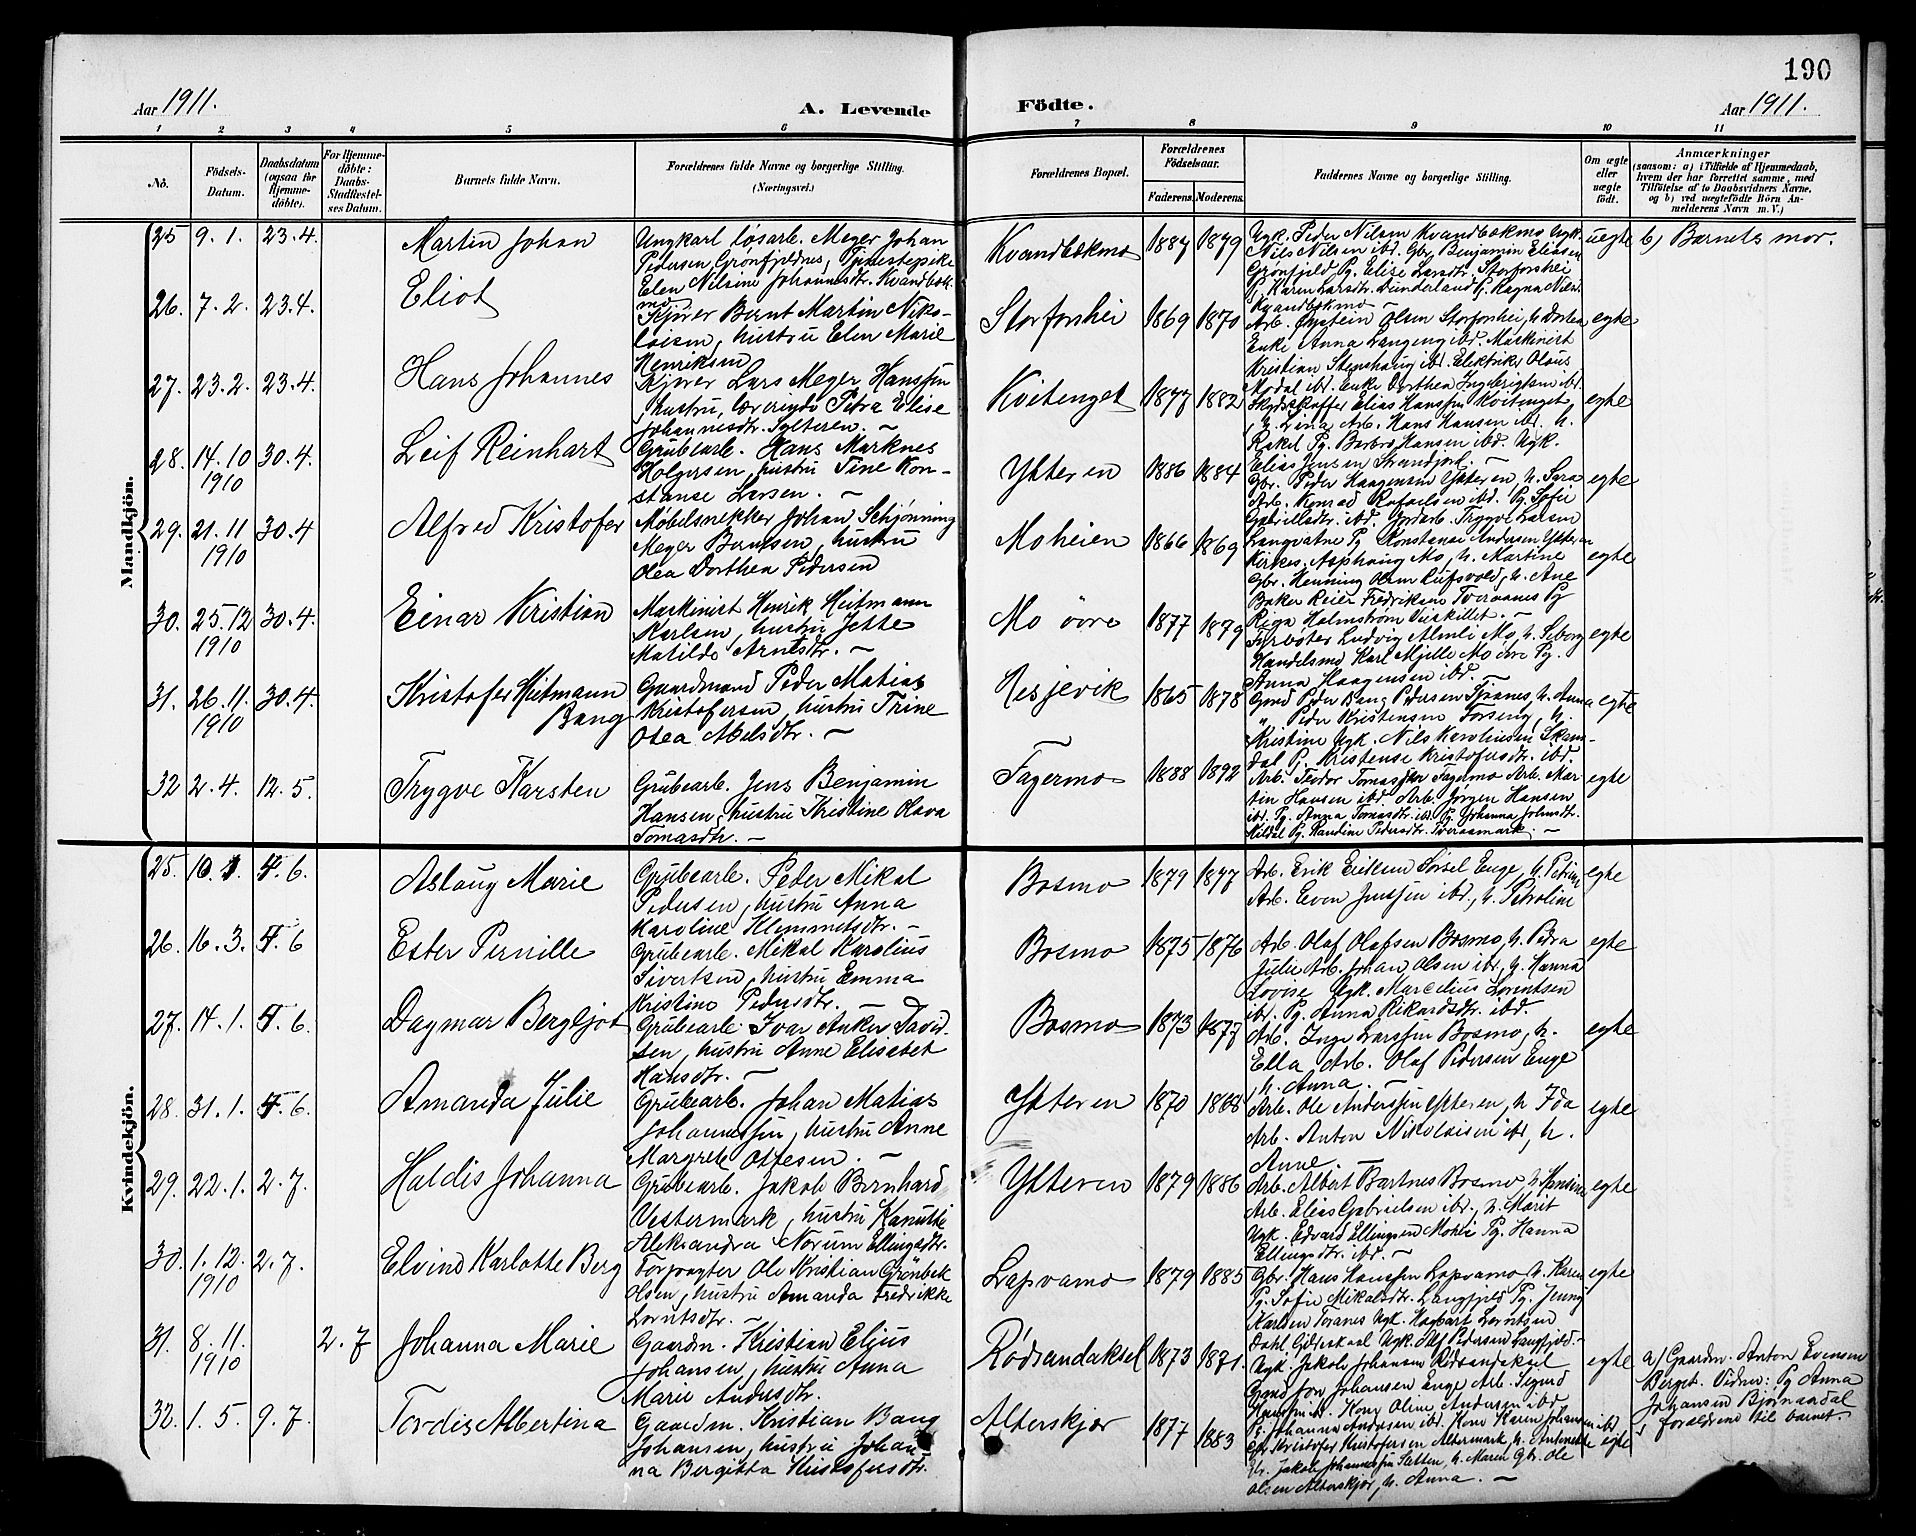 190
Aar 1911.
A. Levende
Födte.
Aar 1911.
1 2 3 4 5 6 7 8 9 10 11
No.
Födsels-Datum.
Daabsdatum (ogsaa for Hjemme-döbte).
For Hjemme-döbte: Daabs-Stadfæstel-ses Datum.
Barnets fulde Navn.
Forældrenes fulde Navne og borgerlige Stilling. (Næringsvei.)
Forældrenes Bopæl.
Forældrenes Födselsaar.
Faderens. Moderens.
Faddernes Navne og borgerlige Stilling.
Om ægte eller uægte födt.
Anmærkninger
(saasom: a) i Tilfælde af Hjemmedaab, hvem der har forrettet samme, med Tilföielse af to Daabsvidners Navne, og b) ved uægtefödte Börn An-melderens Navn m. V.)
Mandkjön.
25 9. 1. 23. 4. Martin Johan
Ungkarl løsarb. Meyer Johan
Pedersen Grønfjeldnes, Tjenestepike
Elen Nilsine Johannesdtr. Kvandbæk-
mo
Kvandbækmo 1887 1879
Ugk. Peder Nilsen Kvandbækmo Ugk.
Nils Nilsen ibd. Gbr. Benjamin Eliassen
Grønfjeld Pg. Elise Larsdtr. Storforshei
Pg. Karen Larsdtr. Dunderland Pg. Ragna Nilsd.
Kvandbækmo –
uegte b) Barnets mor.
26. 7. 2. 23. 4. Eliot
Kjører Bernt Martin Niko-
laisen, hustru Elen Marie
Henriksen
Storforshei 1869 1870
Arb. Øystein Olsen Storforshei, h. Dorthea
Enke Anna Langeng ibd. Maskinist
Kristian Stenshaug ibd. Elektriker Olaus
Modal ibd. Enke Dorthea Ingebrigtsen ibd.
egte
27. 23. 2. 23. 4. Hans Johannes
Kjører Lars Meyer Hanssen
, hustru, lærerinde Petra Elise
Johannesdtr. Ytteren. –
Kvitenget 1877 1882
Skydsskaffer Elias Hanssen Kvitenget
, h. Lina, Arb. Hans Hansen ibd. h.
Rakel Pg. Barbro Hansen ibd. Ugk.
Elias Jensen Strandjord. –
egte
28. 14. 10 1910 30. 4. Leif Reinhart
Grubearb. Hans Marknes
Holgersen, hustru Tine Kon-
stanse Larsen. –
Ytteren 1886 1884
Gbr. Peder Haagensen Ytteren, h. Sara
Arb. Konrad Rafaelsen ibd. Pg. Sofie
Gabrielsdtr. ibd. Jordarb. Trygve Larsen
Langvatne Pg Konstanse Andersen Ytteren
egte
29. 21. 11 1910 30. 4 Alfred Kristofer
Møbelsnekker Johan Schjønning
Meyer Berntsen, hustru
Olea Dorthea Pedersen
Moheien 1866 1869
Kirkes. Asphaug Mo, h. Martine
Gbr. Henning Olsen Rufsvold, h. Ane
Baker Reier Fredriksen Tveraanes Pg
Riga Holmstrøm Veiskillet. –
egte
30. 25. 12 1910 30. 4. Einar Kristian
Maskinist Henrik Heitmann
Karlsen, hustru Jette
Matilde Arntsdtr. –
Mo øvre 1877 1879
Fyrbøter Ludvig Almli Mo, h. Seborg
Handelsmd Karl Mjelle Mo øvre Pg.
Anna Haagensen ibd. –
egte
31. 26. 11. 1910 30. 4. Kristofer Heitmann Bang
Gaardmand Peder Matias
Kristofersen, hustru Trine
Olea Abelsdtr. –
Nesjevik 1865 1878
Gmd Peder Bang Pedersen Toranes, h. Anna
" Peder Kristensen Forseng, h.
Kristine Ugk. Nils Karoliusen Skan-
dal Pg. Kristense Kristofersdtr. ibd.
egte
32 2. 4. 12. 5. Trygve Karsten
Grubearb. Jens Benjamin
Hansen, hustru Kristine Olava
Tomasdtr. –
Fagermo 1888 1892
Arb. Teodor Tomassen Fagermo Arb. Mar
tin Hansen ibd. Arb. Jørgen Hansen
ibd. Pg. Anna Tomasdtr. ibd. Pg. Johanna Johnsdtr.
Nildal Pg. Randine Pedersdtr. Tveraamark. –
egte
Kvindekjön.
25. 10. 1. 5. 6. Aslaug Marie
Grubearb. Peder Mikal
Pedersen, hustru Anna
Karoline Klemmetsdtr. –
Bosmo 1879 1877
Arb. Erik Eriksen Sørsel Enge, h. Petrine
Arb. Even Jenssen ibd., h. Petroline
egte
26. 16. 3. 5. 6 Ester Pernille
Grubearb. Mikal Karolius
Sivertsen, hustru Emma
Kristine Pedersdtr. –
Bosmo 1875 1876
Arb. Olaf Olafsen Bosmo, h. Petra
Julie Arb. Johan Olsen ibd., h. Hanna
Lovise Ugk. Marcelius Lorentsen
ibd. Pg. Anna Rikardsdtr. ibd.
egte
27. 14. 1. 5. 6. Dagmar Bergljot
Grubearb. Ivar Anker David-
sen, hustru Anne Elisabet
Hansdtr. –
Bosmo 1873 1877
Arb. Inge Larssen Bosmo, h.
Ella Arb. Olaf Pedersen Enge
, h. Anna. –
egte
28. 31. 1. 5. 6. Amanda Julie
Grubearb. Johan Matias
Johannessen, hustru Anne
Margrete Ottesen. –
Ytteren 1870 1868
Arb. Ole Anderssen Ytteren, h Ida
Arb. Anton Nikolaisen ibd, h.
Anne –
egte
29. 22. 1. 2. 7. Haldis Johanna
Grubearb. Jakob Bernhard
Vestermark, hustru Kanutte
Aleksandra Norum Ellingsdtr.
Ytteren 1879 1886
Arb. Albert Bartnes Bosmo, h. Hansine
Arb. Elias Gabrielsen ibd, h. Marit
Ugk. Edvard Ellingsen Mohei Pg. Hanna
Ellingsdtr. ibd. –
egte
30. 1. 12. 1910 2. 7. Elvine Karlotte Berg
Forpagter Ole Kristian Grønbek
Olsen, hustru Amanda Fredrikke
Lorntsdtr. –
Lapvamo 1879 1885
Gbr. Hans Hanssen Lapvamo, h. Karen
Pg. Sofie Mikalsdtr. Langfjeld Pg. Jenny
Karlsen Toranes Ugk. Hagbart Lorentsen
Dahl Gideskaal Ugk. Olaf Pedersen Langfjeld –
egte
31. 8. 11. 1910 2. 7 Johanna Marie
Gaardm. Kristian Eljus
Johansen, hustru Anna
Marie Andersdtr.
Rødsandaksel 1873 1871.
Ugk. Jakob Johansen Rødsandaksel
Gmd Jon Johansen Enge Arb. Sigurd
Hanssen Kone Oline Andersen ibd
Pg. Johanna Andersen ibd. Kone Karen Johansen ibd
egte
a/ Gaardm. Anton Evensen
Berget. Vidner: Pg Anna
Johansen Bjørnadal
forældrene til barnet.
32. 1. 5. 9. 7. Tordis Albertina
Gaardm. Kristian Bang
Johansen, hustru Johan
na Bergitta Kristofersdtr.
Alterskjær 1877 1883
Gbr. Kristofer Kristofersen Altermark, h. Antonette
Gbr. Jakob Johannessen Sletten, h. Maren Gbr. Ole
Olsen Alterskjær, h. Anna. –
egte